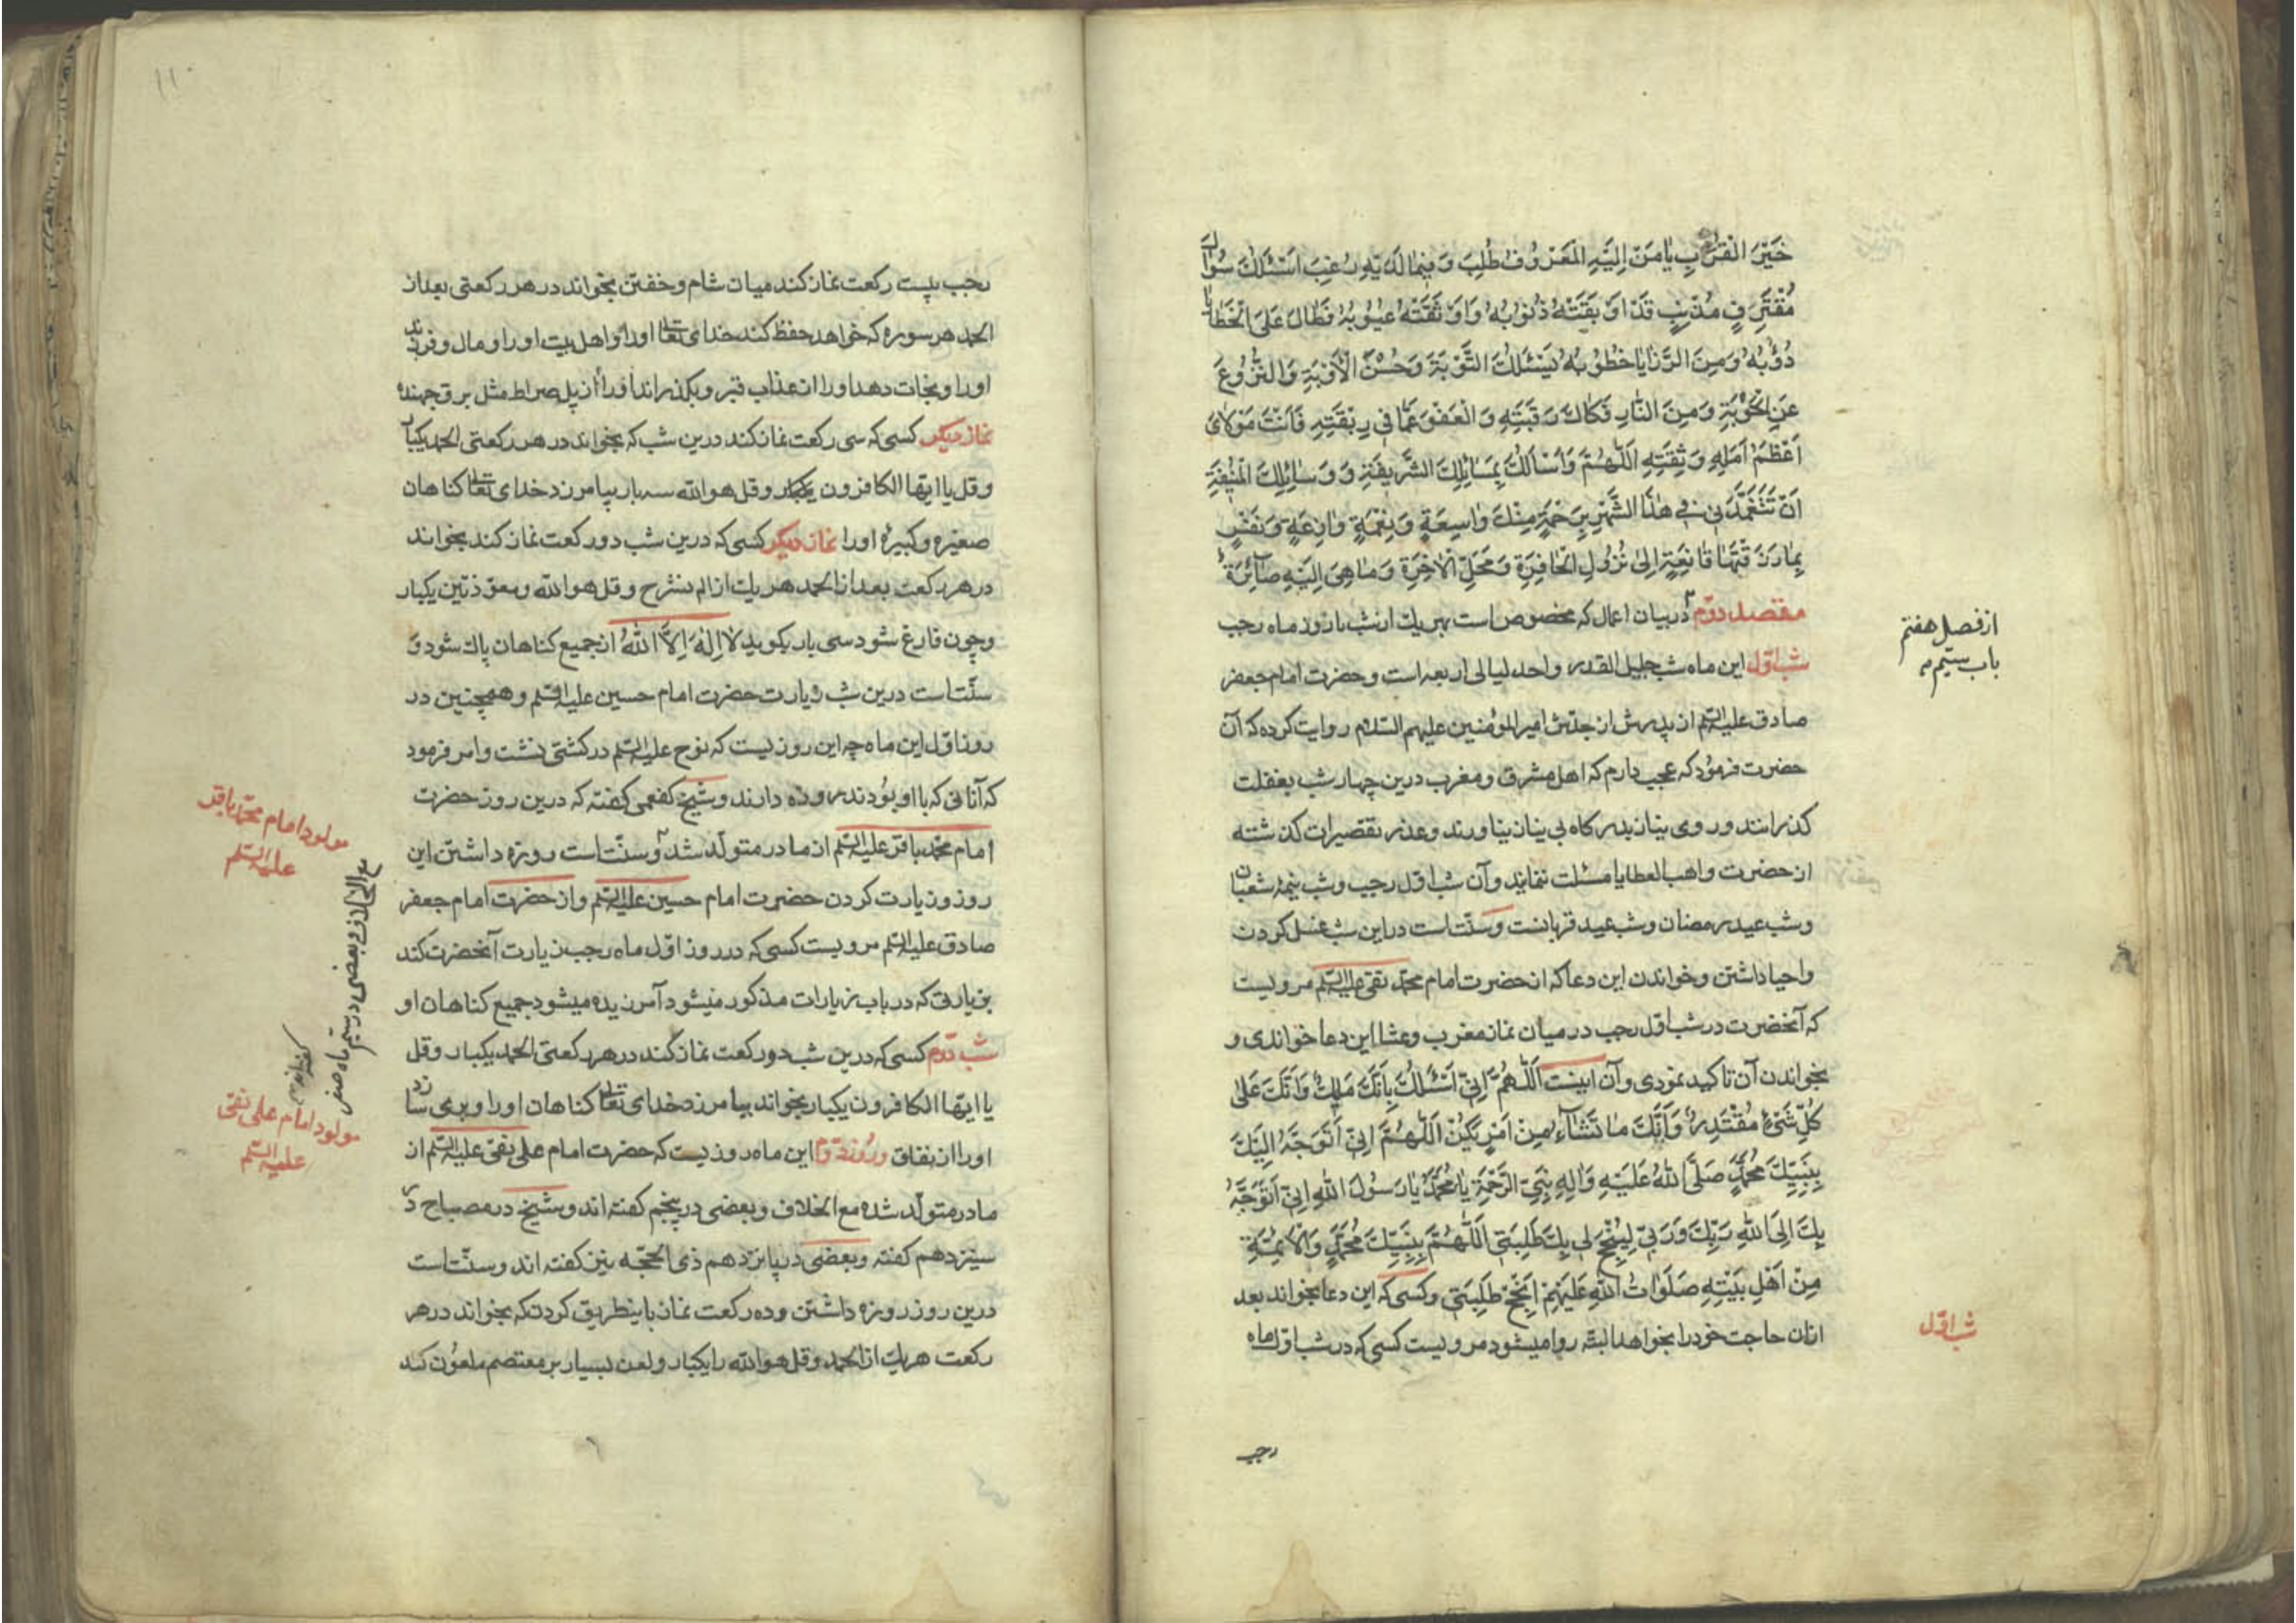 خَيْرَ الْقُرَبِ يَا مَنْ اِلَيْهِ الْمَعْرُوفُ طُلِبَ وَ فِيمَا لَدَيْهِ رُغِبَ اَسْئَلُكَ سُؤَالَ
مُقْتَرِفٍ مُذْنِبٍ قَدْ اَوْبَقَتْهُ ذُنُوبُهُ وَ اَوْثَقَتْهُ عُيُوبُهُ فَطَالَ عَلَى الْخَطَايَا
دُؤُبُهُ وَ مِنَ الرَّزَايَا خُطُوبُهُ يَسْئَلُكَ التَّوْبَةَ وَ حُسْنَ الْاَوْبَةِ وَ النُّزُوعَ
عَنِ الْحَوْبَةِ وَ مِنَ النَّارِ فَكَاكَ رَقَبَتِهِ وَ الْعَفْوَ عَمَّا فِي رِبْقَتِهِ فَاَنْتَ مَوْلَايَ
اَعْظَمُ اَمَلِهِ وَ ثِقَتِهِ اَللّٰهُمَّ وَ اَسْاَلُكَ بِمَسَائِلِكَ الشَّرِيفَةِ وَ وَسَائِلِكَ الْمُنِيفَةِ
اَنْ تَتَغَمَّدَنِي فِي هٰذَا الشَّهْرِ بِرَحْمَةٍ مِنْكَ وَاسِعَةٍ وَ نِعْمَةٍ وَازِعَةٍ وَ نَفْسٍ
بِمَا رَزَقْتَهَا قَانِعَةٍ اِلٰى نُزُولِ الْحَافِرَةِ وَ مَحَلِّ الْاٰخِرَةِ وَ مَا هِيَ اِلَيْهِ صَآئِرَةٌ
مقصد دوّم در بیان اعمال که مخصوص است بهر یك از شب یا روز ماه رجب
شب اوّل این ماه شب جلیل القدر و احد لیالی اربعه است و حضرت امام جعفر
صادق علیه السّلم از پدرش از جدّش امیر المؤمنین علیهم السلام روایت کرده که آن
حضرت فرمود که عجب دارم که اهل مشرق و مغرب درین چهار شب بغفلت
کذرانند و روی بنیاز بدرکاه بی نیاز نیاورند و عذر تقصیرات کذشته
از حضرت واهب العطایا مسئلت ننمایند و آن شب اوّل رجب و شب نیمه شعبان
و شب عید رمضان و شب عید قربانست و سنّت است در این شب غسل کردن
و احیا داشتن و خواندن این دعا که از حضرت امام محمّد تقی علیه السّلم مرویست
که آنحضرت در شب اوّل رجب در میان نماز مغرب و عشا این دعا خواندی و
بخواندن آن تاکید نمودی و آن اینست اَللّٰهُمَّ اِنِّي اَسْئَلُكَ بِاَنَّكَ مَلِكٌ وَ اَنَّكَ عَلٰى
كُلِّ شَيْءٍ مُقْتَدِرٌ وَ اَنَّكَ مَا تَشَآءُ مِنْ اَمْرٍ يَكُنْ اَللّٰهُمَّ اِنِّي اَتَوَجَّهُ اِلَيْكَ
بِنَبِيِّكَ مُحَمَّدٍ صَلَّى اللهُ عَلَيْهِ وَ اٰلِهِ نَبِيِّ الرَّحْمَةِ يَا مُحَمَّدُ يَا رَسُولَ اللهِ اِنِّي اَتَوَجَّهُ
بِكَ اِلَى اللهِ رَبِّكَ وَ رَبِّي لِيُنْجِحَ لِي بِكَ طَلِبَتِي اَللّٰهُمَّ بِنَبِيِّكَ مُحَمَّدٍ وَ الْاَئِمَّةِ
مِنْ اَهْلِ بَيْتِهِ صَلَوَاتُ اللهِ عَلَيْهِمْ اَنْجِحْ طَلِبَتِي و کسی که این دعا بخواند بعد
ازان حاجت خود را بخواهد البته روا میشود مرویست کسی که در شب اوّل ماه
رجب
از فصل هفتم
باب ستیم
شب اوّل
۱۱۰
رجب بیست رکعت نماز کند میان شام و خفتن بخواند در هر رکعتی بعد از
الحمد هر سوره که خواهد حفظ کند خدای تعالی او را و اهل بیت او را و مال و فرزند
او را و نجات دهد او را از عذاب قبر و بکذراند او را از پل صراط مثل برق جهنده
نماز دیکر کسی که سی رکعت نماز کند درین شب که بخواند در هر رکعتی الحمد یکبار
و قل یا ایها الکافرون یکبار و قل هو الله سه بار بیامرزد خدای تعالی کناهان
صغیره و کبیره او را نماز دیکر کسی که درین شب دو رکعت نماز کند بخواند
در هر رکعت بعد از الحمد هر یك از الم نشرح و قل هو الله و معوّذتین یکبار
و چون فارغ شود سی بار بکوید لَا اِلٰهَ اِلَّا اللهُ از جمیع کناهان پاك شود و
سنّت است درین شب زیارت حضرت امام حسین علیه السّلم و همچنین در
روز اوّل این ماه چه این روزیست که نوح علیه السّلم در کشتی نشست و امر فرمود
که آنانی که با او بودند روزه دارند و شیخ کفعمی کفته که درین روز حضرت
امام محمّد باقر علیه السّلم از مادر متولّد شد و سنّت است روزه داشتن این
روز و زیارت کردن حضرت امام حسین علیه السّلم و از حضرت امام جعفر
صادق علیه السّلم مرویست کسی که در روز اوّل ماه رجب زیارت آنحضرت کند
بزیارتی که در باب زیارات مذکور میشود آمرزیده میشود جمیع کناهان او
شب دوّم کسی که درین شب دو رکعت نماز کند در هر رکعتی الحمد یکبار و قل
یا ایّها الکافرون یکبار بخواند بیامرزد خدای تعالی کناهان او را و بری سازد
او را از نفاق و روز دوّم این ماه روزیست که حضرت امام علی نقی علیه السّلم از
مادر متولّد شده مع الخلاف و بعضی در پنجم کفته اند و شیخ در مصباح در
سیزدهم کفته و بعضی در پانزدهم ذی الحجّه نیز کفته اند و سنّت است
درین روز روزه داشتن و ده رکعت نماز باینطریق کردن که بخواند در هر
رکعت هر یك از الحمد و قل هو الله را یکبار و لعن بسیار بر معتصم ملعون کند
مولود امام محمّد باقر
علیه السّلم
مع الخلاف و بعضی در ستیم ماه صفر
کفته اند
مولود امام علی نقی
علیه السّلم